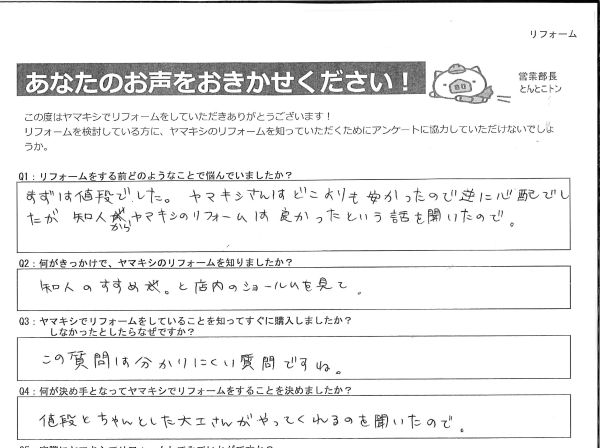 リフォーム
あなたのお声をおきかせください！
営業部長
とんとこトン
この度はヤマキシでリフォームをしていただきありがとうございます！
リフォームを検討している方に、ヤマキシのリフォームを知っていただくためにアンケートに協力していただけないでしょ
うか。
Q1：リフォームをする前どのようなことで悩んでいましたか？
まずは値段でした。ヤマキシさんはどこよりも安かったので逆に心配でし
たが 知人からヤマキシのリフォームは良かったという話を聞いたので。
Q2：何がきっかけで、ヤマキシのリフォームを知りましたか？
知人のすすめ と店内のショールームを見て。
Q3：ヤマキシでリフォームをしていることを知ってすぐに購入しましたか？
しなかったとしたらなぜですか？
この質問は分かりにくい質問ですね。
Q4：何が決め手となってヤマキシでリフォームをすることを決めましたか？
値段とちゃんとした大工さんがやってくれるのを聞いたので。